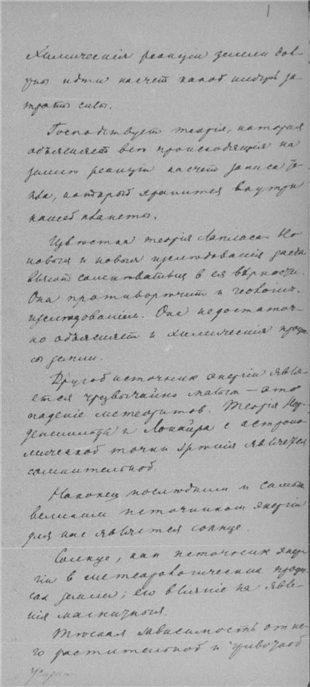 Химическія реакціи земли дол-
жны идти насчет какой нибудь за
траты силы.
Господствует теорія, которая
объясняет все происходящія на
землѣ реакціи насчет запаса те-
пла, который хранится внутри
нашей планеты.
Извѣстна теорія Лапласа. Но
новыя и новыя изслѣдованія заста
вляют сомнѣваться в ея вѣрности.
Она противорѣчит и геологич.
изслѣдованіям. Она недостаточ-
но объясняет и химическія процес
сы земли.
Другой источник энергіи явля-
ется чрезвычайно малым — это
паденіе метеоритов. Теорія
и Локайра с астроно-
мической точки зрѣнія является
сомнительной.
Наконец послѣдним и самым
великим источником энергіи
для нас является солнце.
Солнце, как источник энер
гіи в метеорологических процес
сах земли; его вліяніе на явле
нія магнитныя.
Тѣсная зависимость от не
го растительной и животной